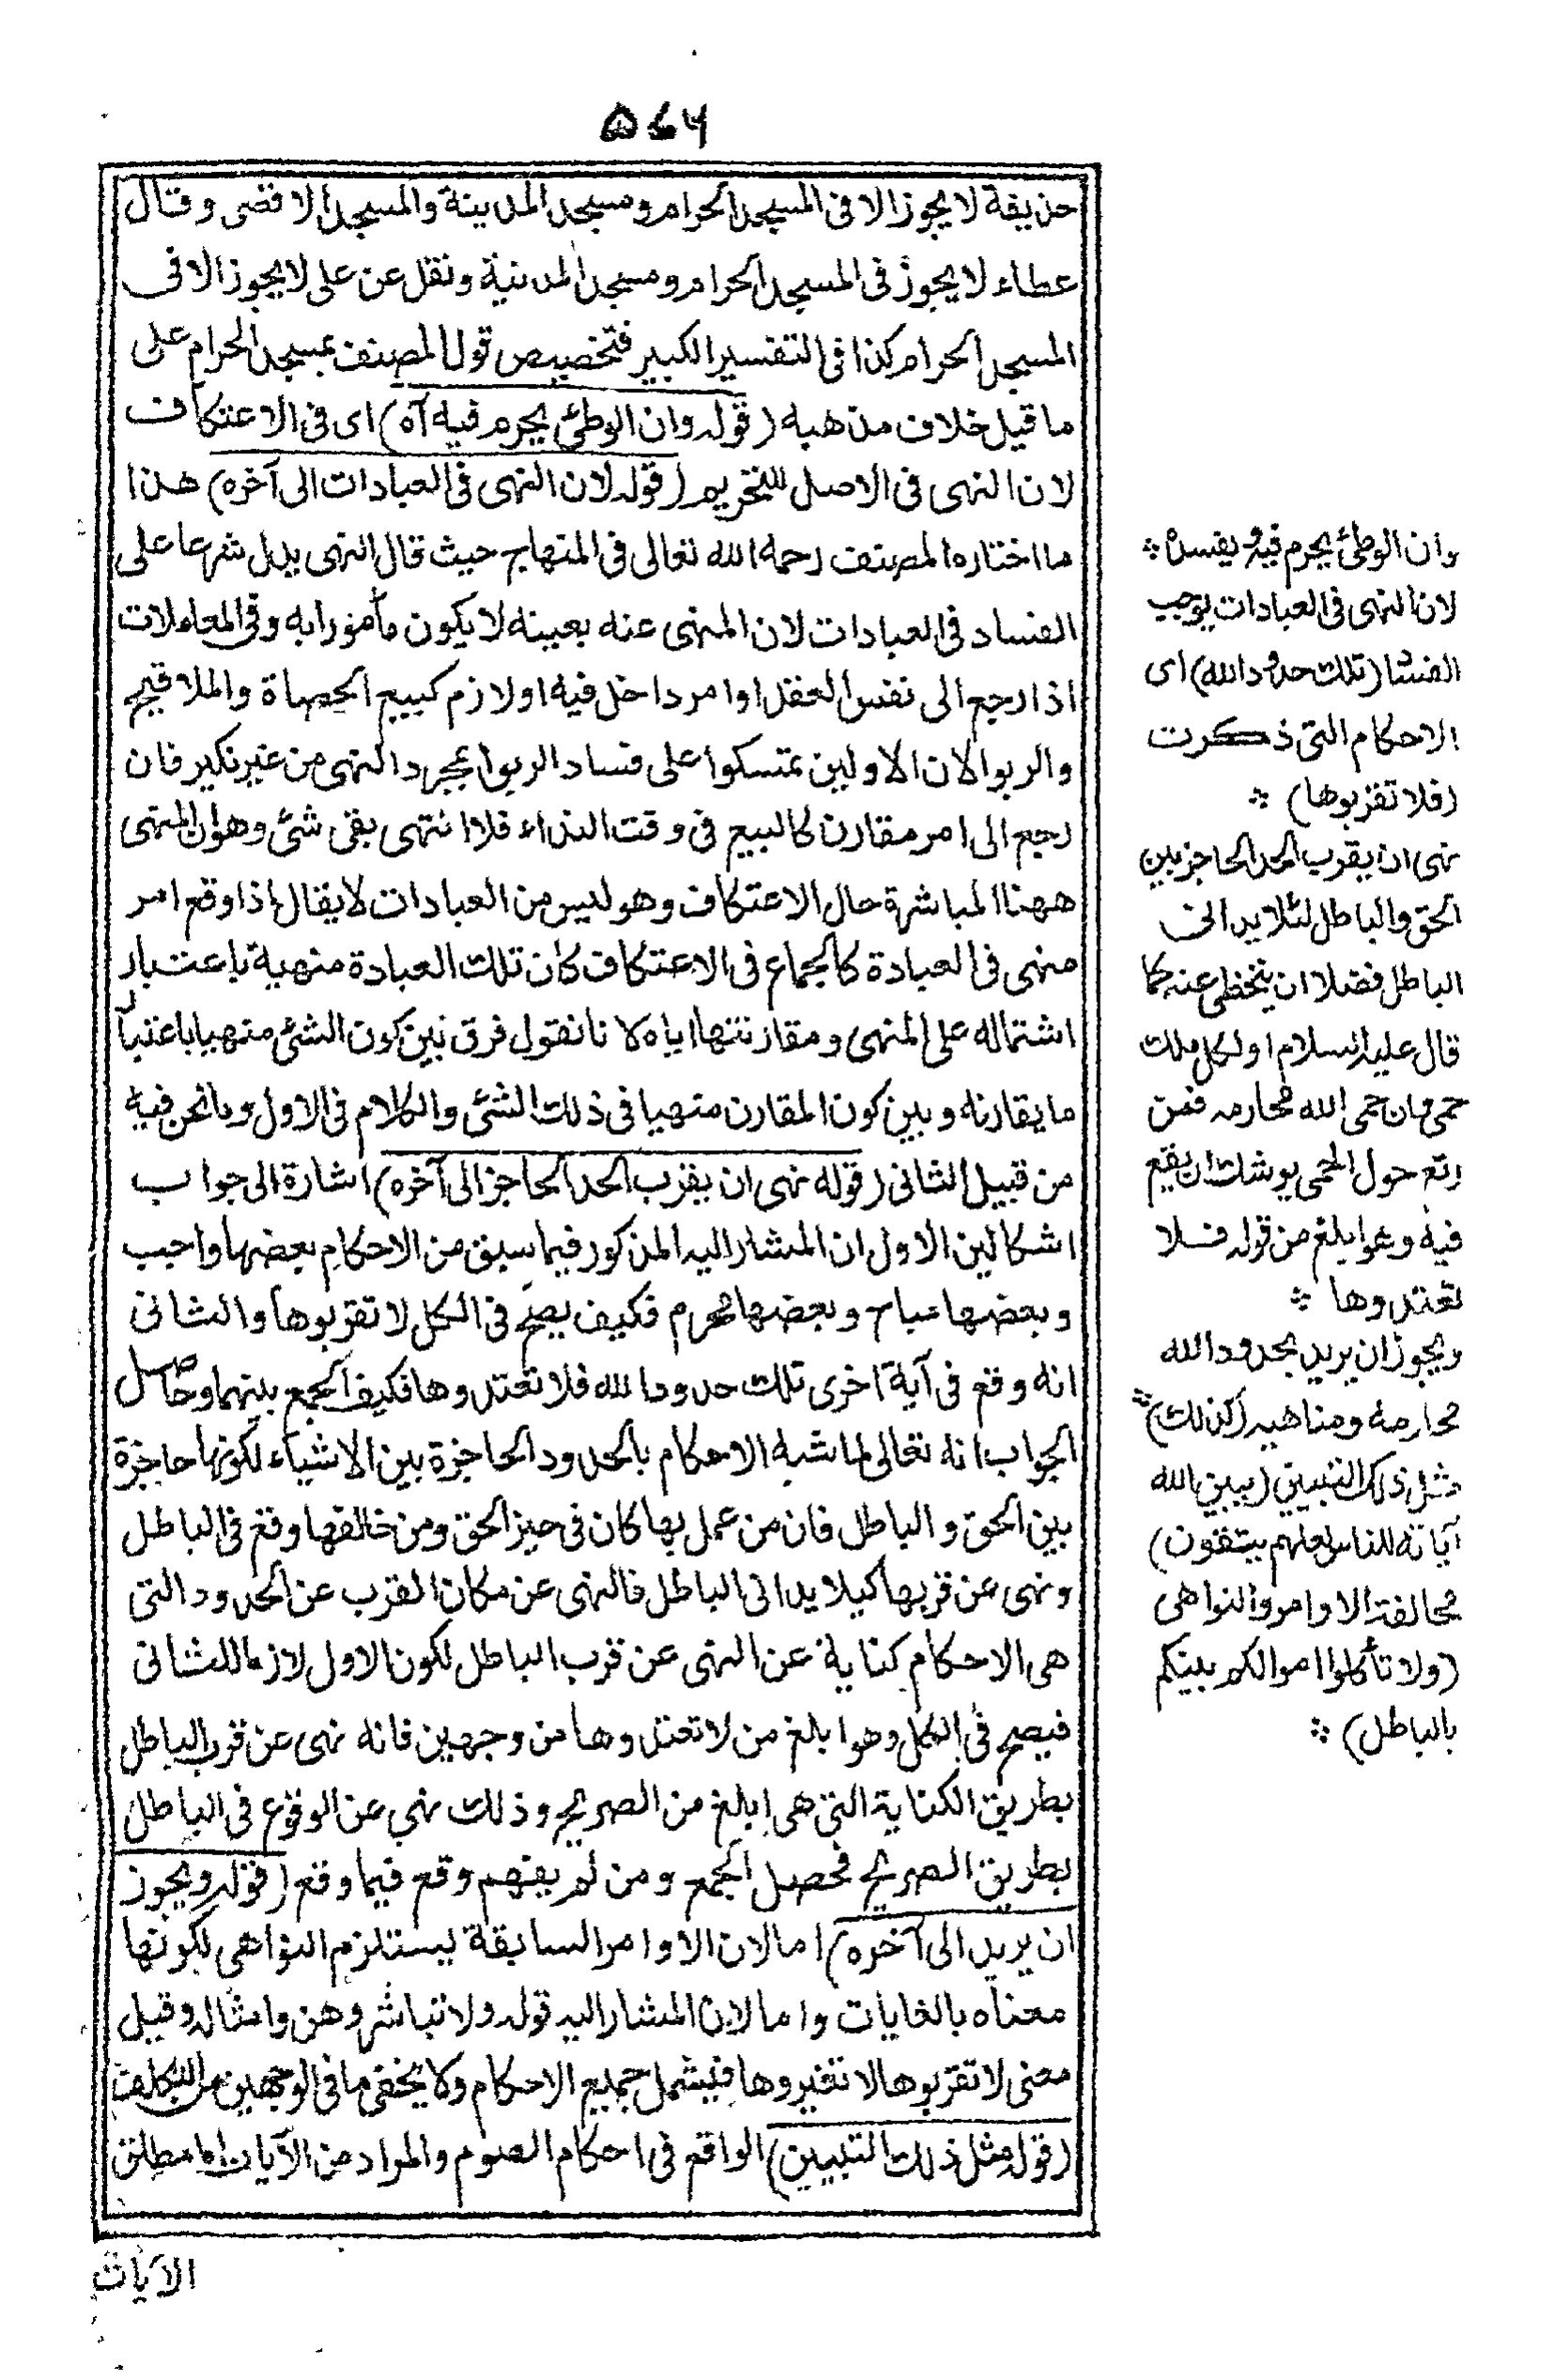 ۵۷۶
حذيفة لا يجوز الا فى المسجد الحرام ومسجد المدينة والمسجد الاقصى وقال
عطاء لا يجوز فى المسجد الحرام ومسجد المدينة ونقل عن على لا يجوز الا فى
المسجد الحرام كذا فى التفسير الكبير فتخصيص قول المصنف بمسجد الحرام على
ما قيل خلاف مذهبه (قوله وان الوطئ يحرم فيه آه) اى فى الاعتكاف
لان النهى فى الاصل للتحريم (قوله لان النهى فى العبادات الى آخره) هذا
ما اختاره المصنف رحمه الله تعالى فى المنهاج حيث قال النهى يدل شرعا على
الفساد فى العبادات لان المنهى عنه بعينه لا يكون مأمورا به وفى المعاملات
اذا رجع الى نفس العقد او امر داخل فيه او لازم كبيع الحصاة والملاقيح
والربوا لان الاولين تمسكوا على فساد الربوا بمجرد النهى من غير نكير فان
رجع الى امر مقارن كالبيع فى وقت النداء فلا انتهى بقى شئ وهو ان المنهى
ههنا المباشرة حال الاعتكاف وهو ليس من العبادات لا يقال اذا وقع امر
منهى فى العبادة كالجماع فى الاعتكاف كان تلك العبادة منهية باعتبار
اشتماله على المنهى ومقارنتها اياه لانا نقول فرق بين كون الشئ منهيا باعتبار
ما يقارنه وبين كون المقارن منهيا فى ذلك الشئ والكلام فى الاول وما نحن فيه
من قبيل الثانى (قوله نهى ان يقرب الحد الحاجز الى آخره) اشارة الى جواب
اشكالين الاول ان المشار اليه المذكور فيما سبق من الاحكام بعضها واجب
وبعضها مباح وبعضها محرم فكيف يصح فى الكل لا تقربوها والثانى
انه وقع فى آية اخرى تلك حدود الله فلا تعتدوها فكيف الجمع بينهما وحاصل
الجواب انه تعالى لما شبه الاحكام بالحدود الحاجزة بين الاشياء لكونها حاجزة
بين الحق والباطل فان من عمل بها كان فى حيز الحق ومن خالفها وقع فى الباطل
ونهى عن قربها كيلا يدانى الباطل فالنهى عن مكان القرب عن الحدود التى
هى الاحكام كناية عن النهى عن قرب الباطل لكون الاول لازما للثانى
فيصح فى الكل وهو ابلغ من لا تعتدوها من وجهين فانه نهى عن قرب الباطل
بطريق الكناية التى هى ابلغ من الصريح وذلك نهى عن الوقوع فى الباطل
بطريق الصريح فحصل الجمع ومن لم يفهم وقع فيما وقع (قوله ويجوز
ان يريد الى آخره) اما لان الاوامر السابقة يستلزم النواهى لكونها
معناه بالغايات واما لان المشار اليه قوله ولا تباشروهن وامثاله وقيل
معنى لا تقربوها لا تغيروها فيشمل جميع الاحكام ولا يخفى ما فى الوجهين من التكلف
(قوله مثل ذلك التبيين) الواقع فى احكام الصوم والمراد من الآيات اما مطلق
الآيات
وان الوطئ يحرم فيه ويفسده
لان النهى فى العبادات يوجب
الفساد (تلك حدود الله) اى
الاحكام التى ذكرت
(فلا تقربوها)
نهى ان يقرب الحد الحاجز بين
الحق والباطل لئلا يدانى
الباطل فضلا ان يتخطى عنه كما
قال عليه السلام ان لكل ملك
حمى وان حمى الله محارمه فمن
رتع حول الحمى يوشك ان يقع
فيه وهو ابلغ من قوله فلا
تعتدوها
ويجوز ان يريد بحدود الله
محارمه ومناهيه (كذلك)
مثل ذلك التبيين (يبين الله
آياته للناس لعلهم يتقون)
مخالفة الاوامر والنواهى
(ولا تأكلوا اموالكم بينكم
بالباطل)